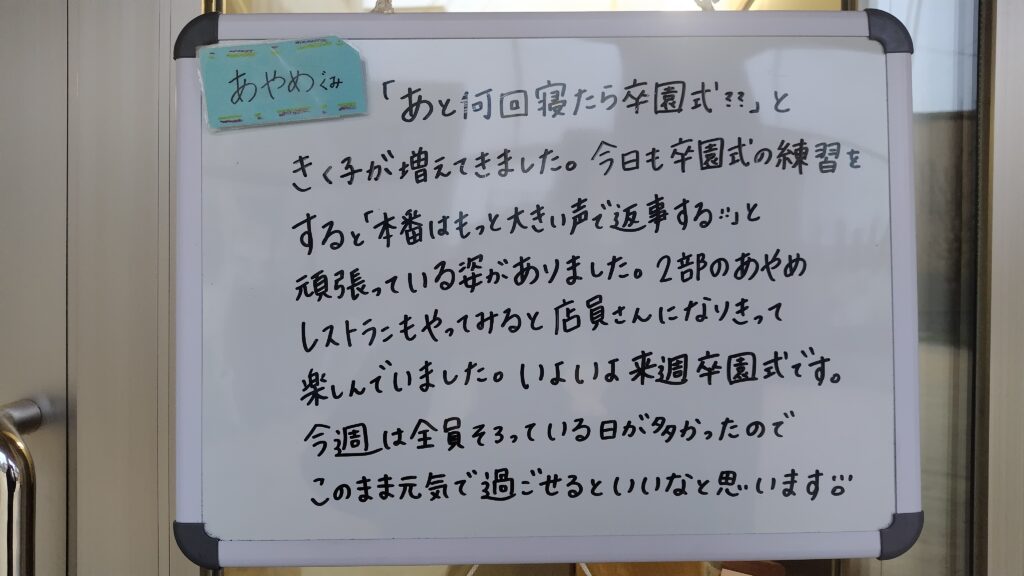 あやめぐみ
「あと何回寝たら卒園式??」と
きく子が増えてきました。今日も卒園式の練習を
すると「本番はもっと大きい声で返事する!!」と
頑張っている姿がありました。2部のあやめ
レストランもやってみると店員さんになりきって
楽しんでいました。いよいよ来週卒園式です。
今週は全員そろっている日が多かったので
このまま元気で過ごせるといいなと思います!!